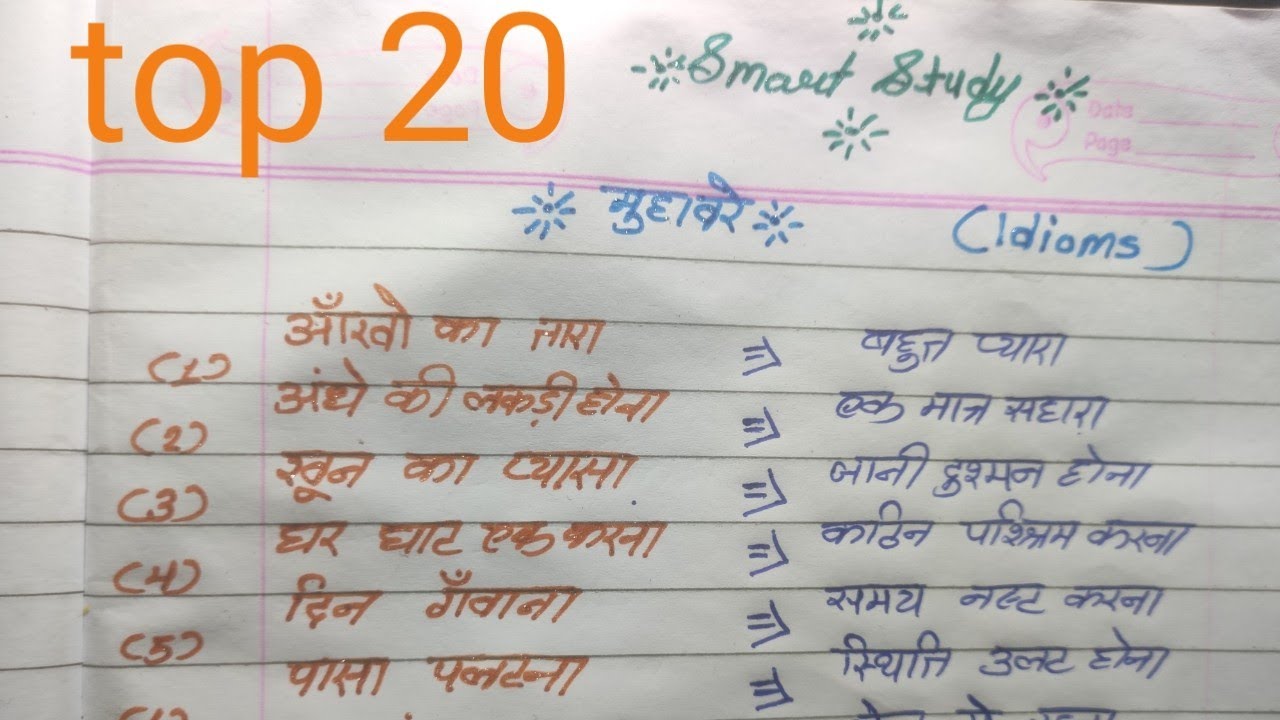 top 20
Smart Study
Date
Page
मुहावरे (Idioms)
(1) आँखो का तारा ⇒ बहुत प्यारा
(2) अंधे की लकड़ी होना ⇒ एक मात्र सहारा
(3) खून का प्यासा ⇒ जानी दुश्मन होना
(4) घर घाट एक करना ⇒ कठिन परिश्रम करना
(5) दिन गँवाना ⇒ समय नष्ट करना
पासा पलटना ⇒ स्थिति उलट होना